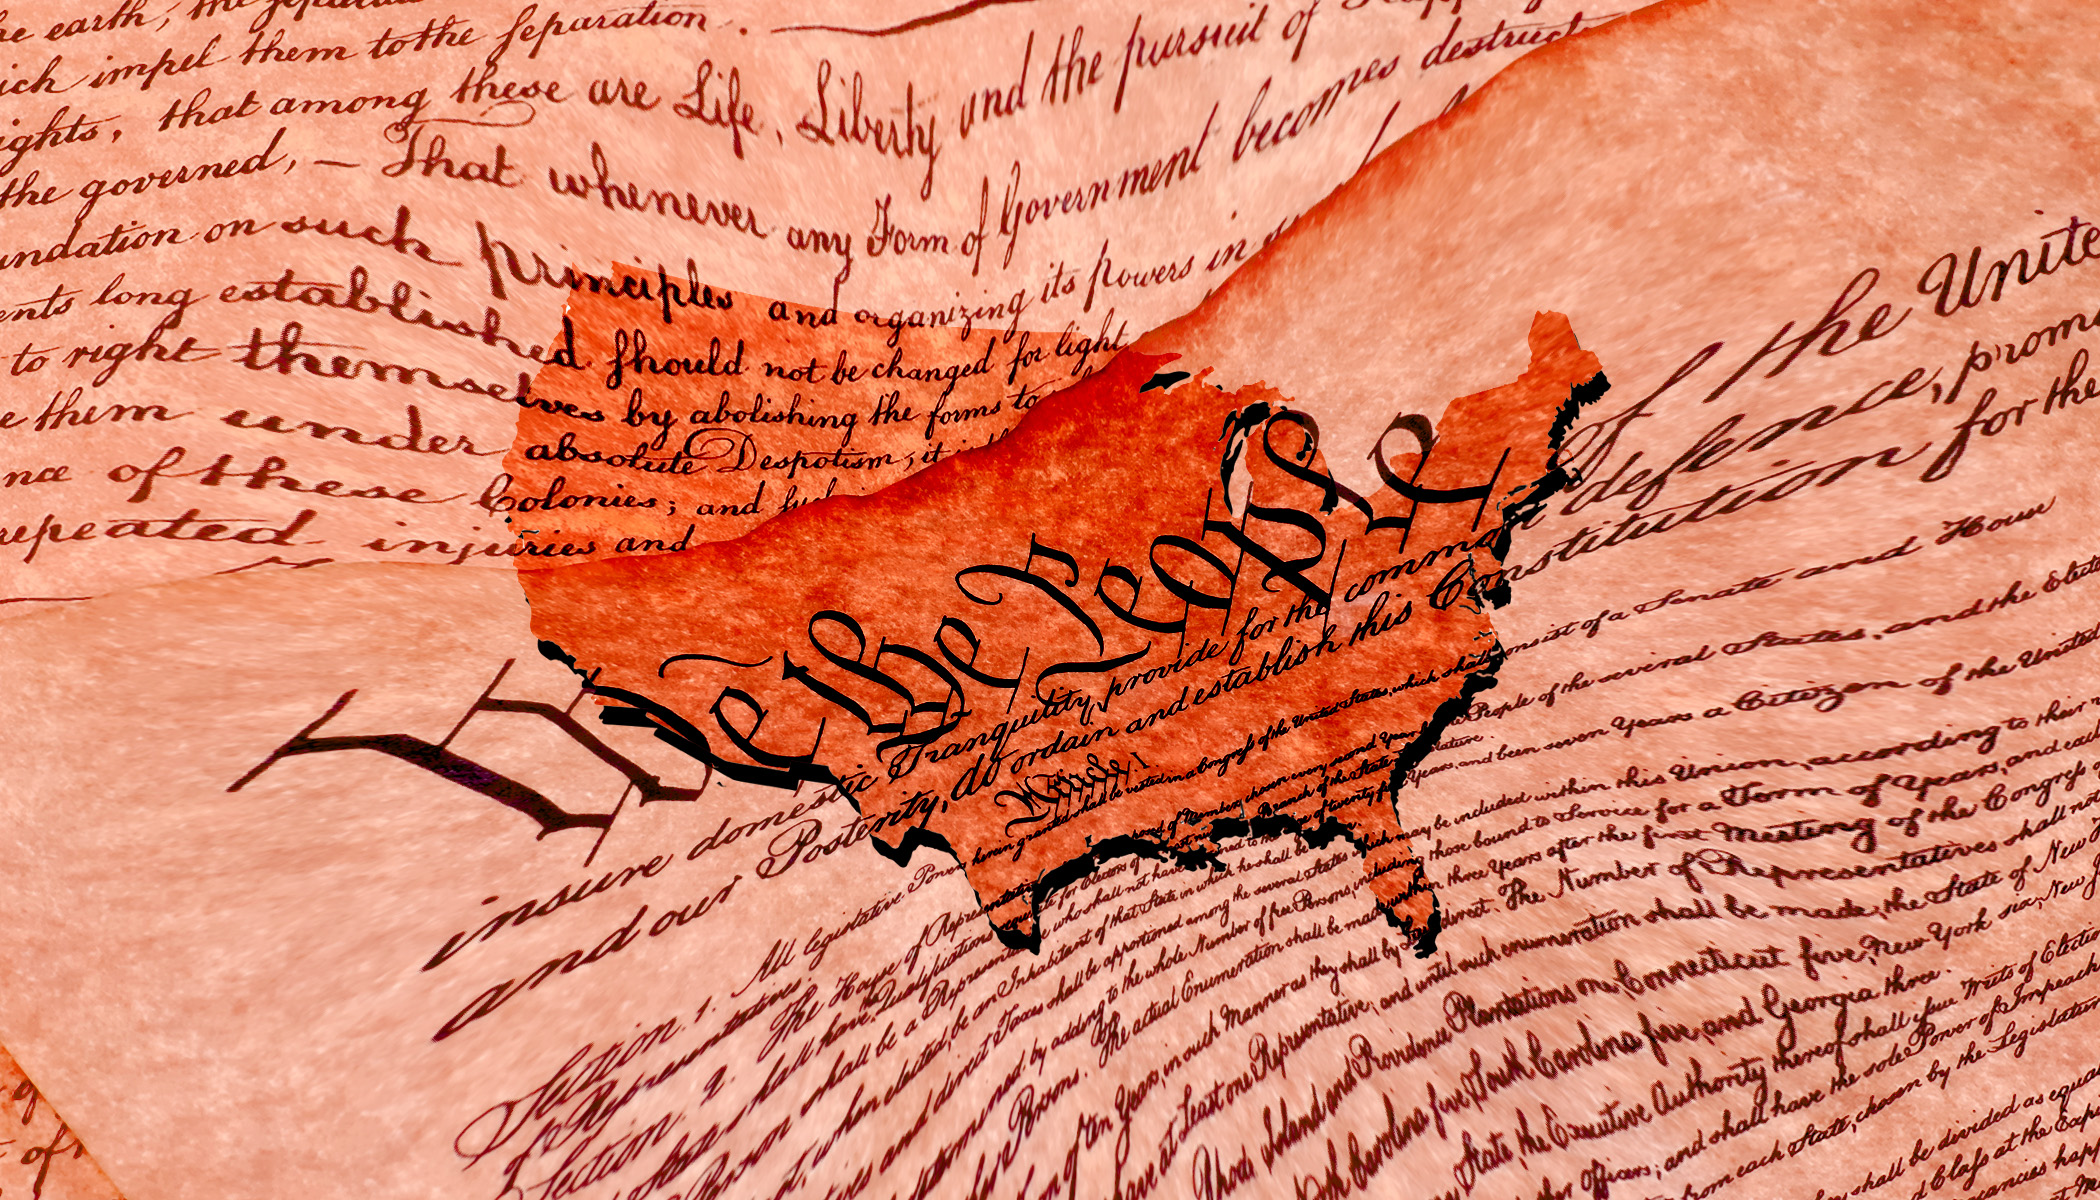 the earth, the separat
which impel them to the separation.
ights, that among these are Life, Liberty and the pursuit of Happ
the governed, — That whenever any Form of Government becomes destruct
undation on such principles and organizing its powers in
ents long established should not be changed for light
to right themselves by abolishing the forms to
e them under absolute Despotism, it is
nce of these Colonies; and such
repeated injuries and
We the People of the Unite
insure domestic Tranquility, provide for the common defence, prom
and our Posterity, do ordain and establish this Constitution for the
Article. I.
Section. 1. All legislative Powers herein granted shall be vested in a Congress of the United States, which shall consist of a Senate and House
of Representatives.
Section. 2. The House of Representatives shall be composed of Members chosen every second Year by the People of the several States, and the Elect
shall have Qualifications requisite for Electors of the most numerous Branch of the State Legislature.
No Person shall be a Representative who shall not have attained to the Age of twenty five Years, and been seven Years a Citizen of the United
when elected, be an Inhabitant of that State in which he shall be
Representatives and direct Taxes shall be apportioned among the several States which may be included within this Union, according to their
by adding to the whole Number of free Persons, including those bound to Service for a Term of Years, and
Persons. The actual Enumeration shall be made within three Years after the first Meeting of the Congress
of ten Years, in such Manner as they shall by Law direct. The Number of Representatives shall not
have at Least one Representative; and until such enumeration shall be made, the State of New
Rhode Island and Providence Plantations one, Connecticut five, New York six, New J
North Carolina five, South Carolina five, and Georgia three.
State, the Executive Authority thereof shall issue Writs of Electi
other Officers; and shall have the sole Power of Impeach
from each State, chosen by the Legislatur
shall be divided as equal
Class at the Exp
of